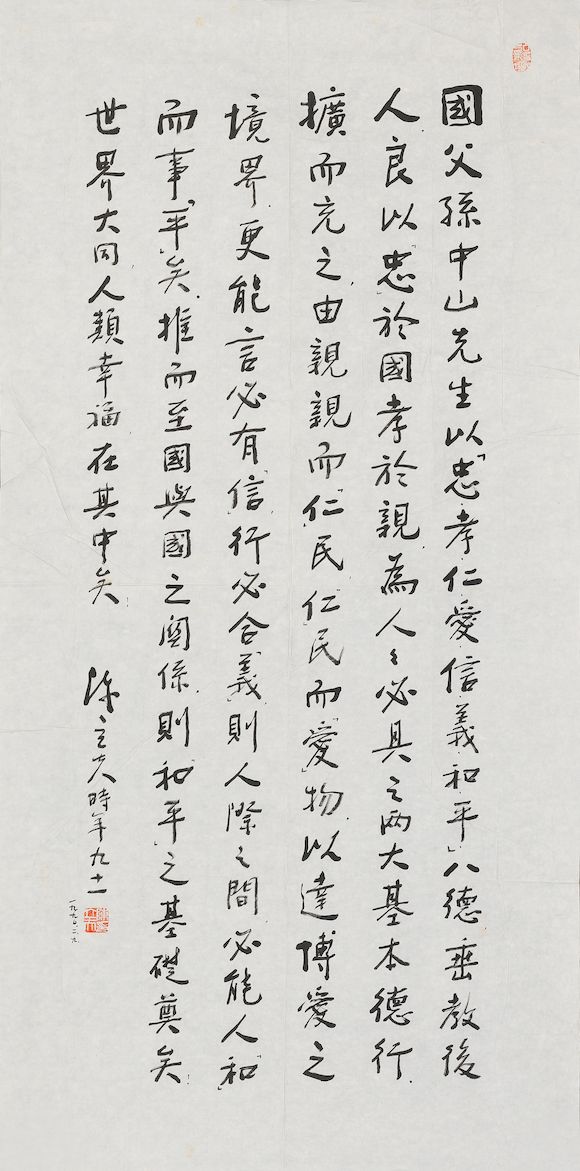 國父孫中山先生以「忠、孝、仁、愛、信、義、和、平」八德垂教後
人、良以「忠」於國孝於親、為人人必具之兩大基本德行、
擴而充之、由親親而「仁」民、仁民而「愛」物、以達博愛之
境界、更能言必有「信」、行必合「義」、則人際之間、必能人「和」
而事「平」矣、推而至國與國之關係、則「和平」之基礎奠矣、
世界大同、人類幸福、在其中矣、
陳立夫時年九十一
一九九〇.二.六